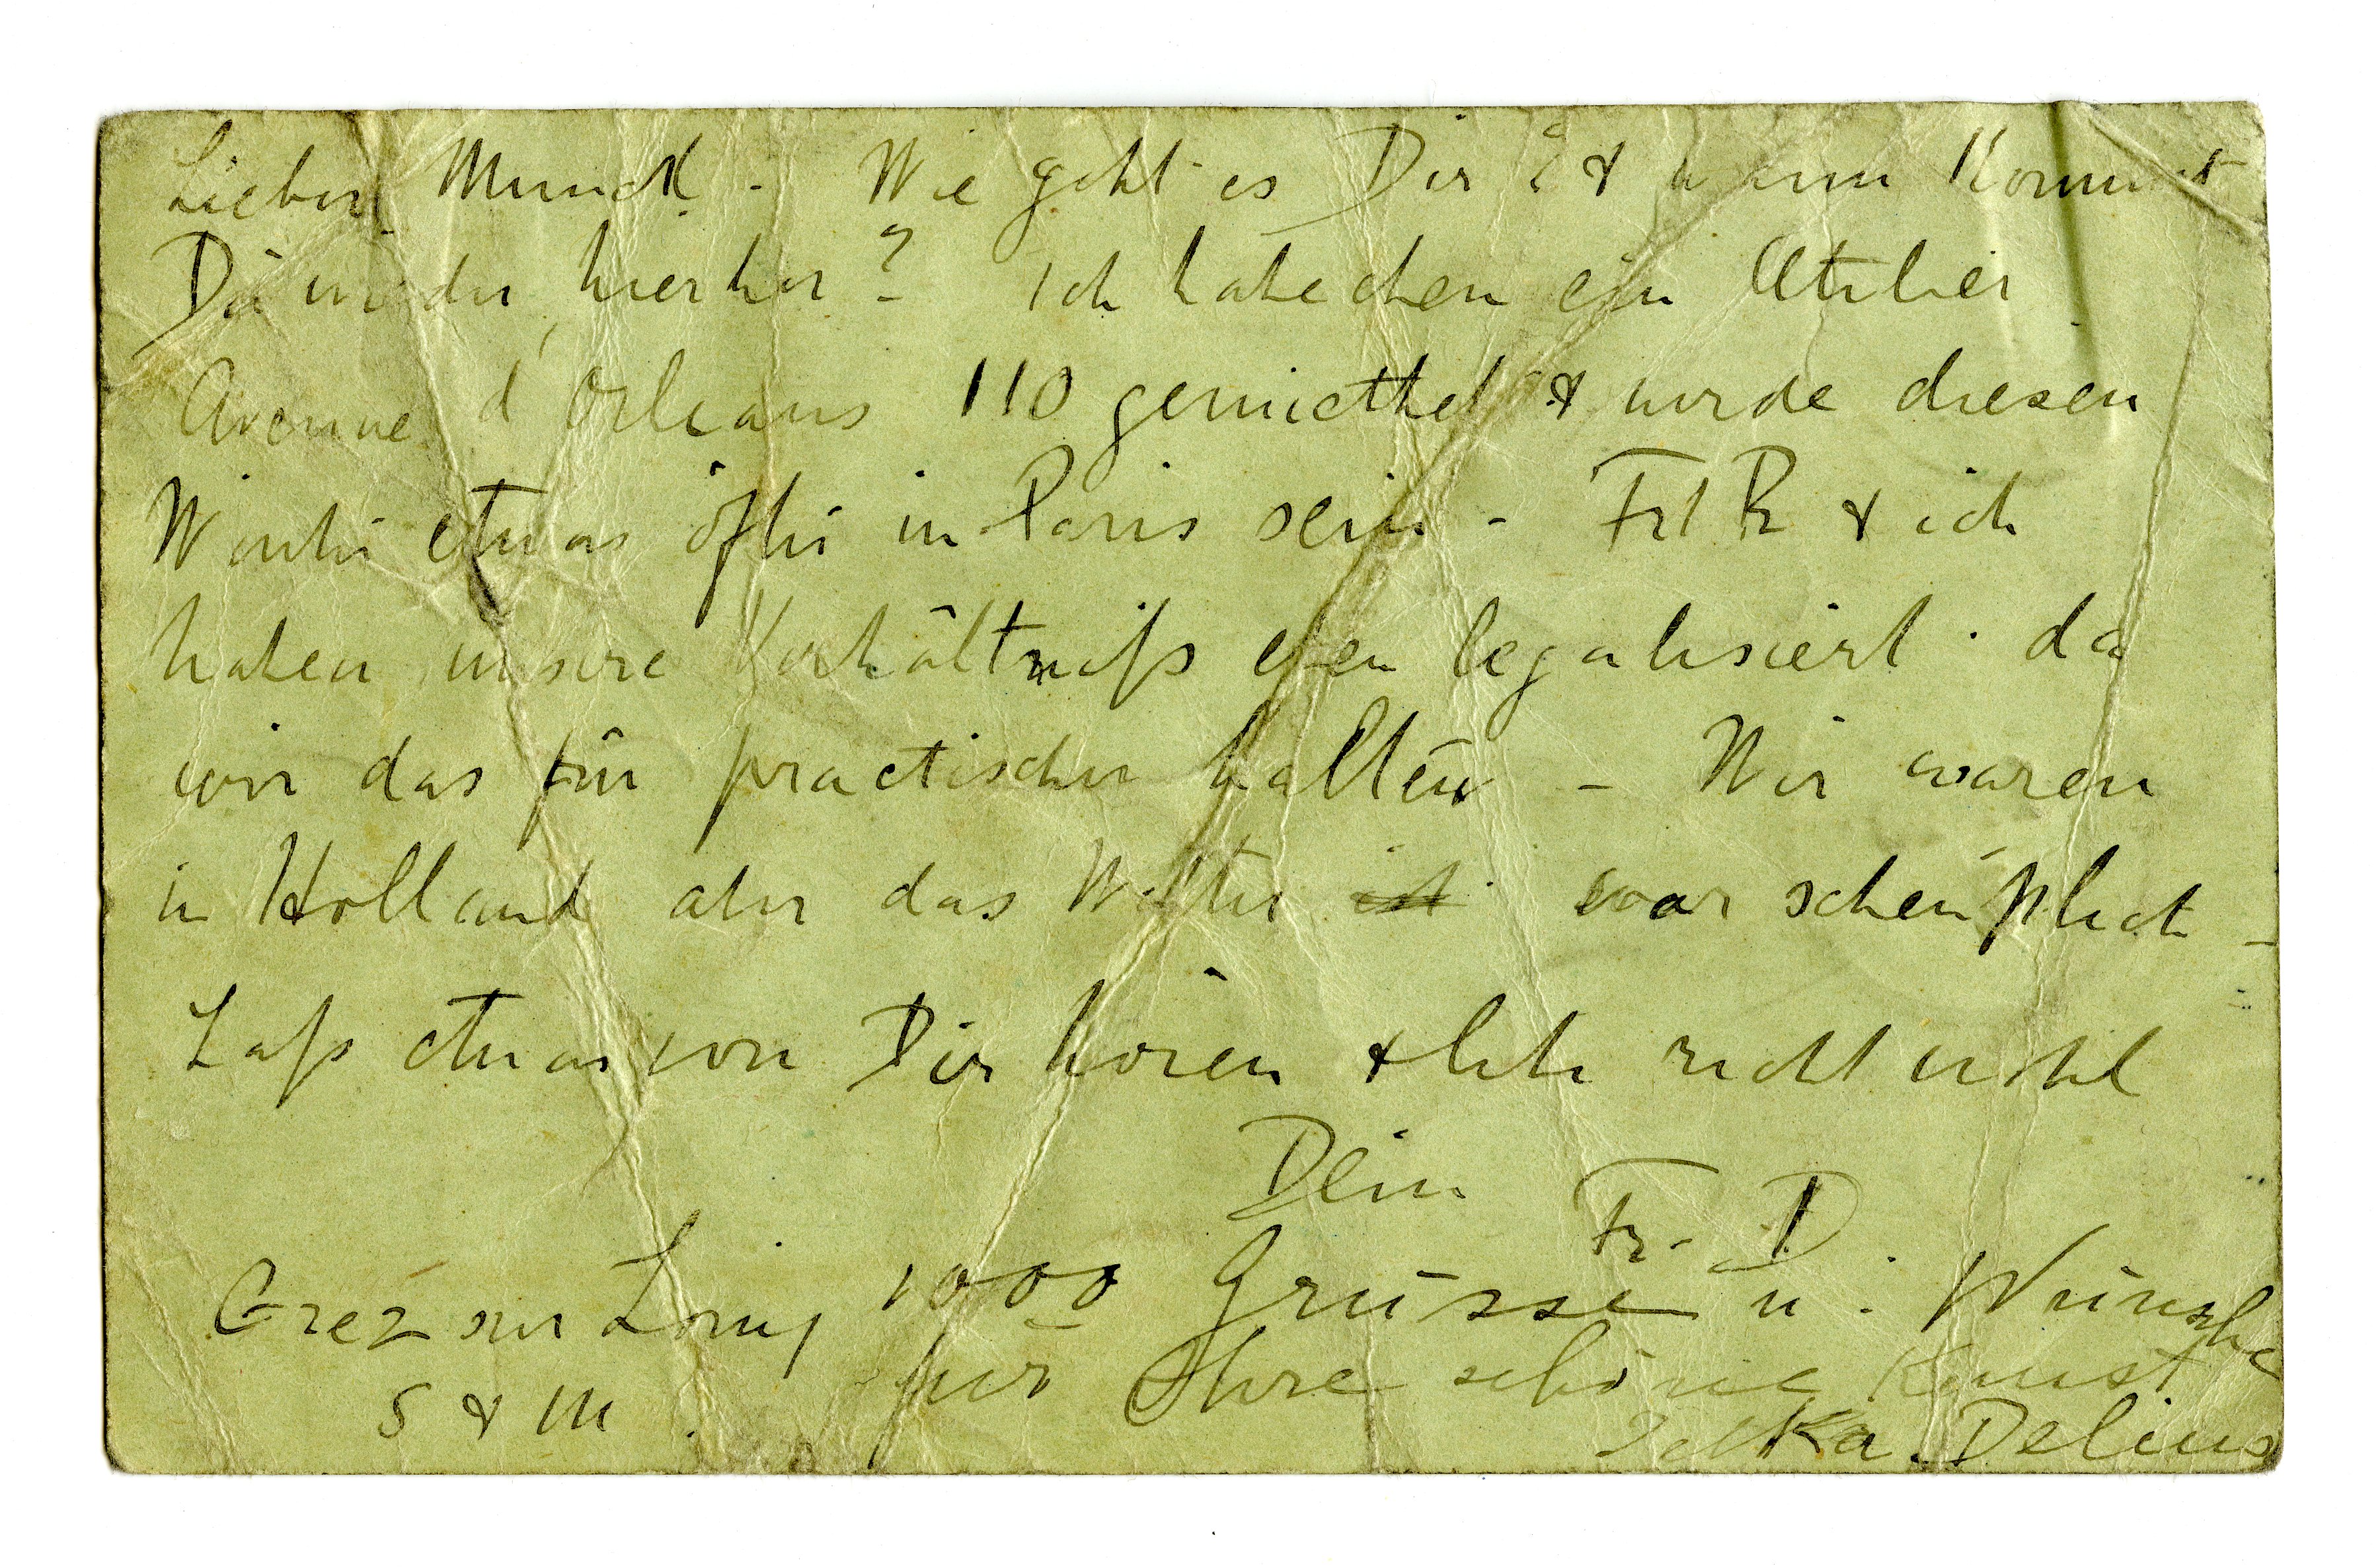 Lieber Munch - Wie geht es Dir? & wann kommst
Du wieder hierher? Ich habe eben ein Atelier
Avenue d'Orleans 110 gemiethet & werde diesen
Winter etwas öfter in Paris sein - Frl R & ich
haben unsere Verhältniß eben legalisiert. da
wir das für practischer halten - Wir waren
in Holland aber das Wetter ist war scheußlich -
Laß etwas von Dir hören & lebe recht wohl
Dein
Fr. D
Grez sur Loing
S & M.
1000 Grüsse u. Wünsche
für Ihre schöne Kunst
Jelka Delius